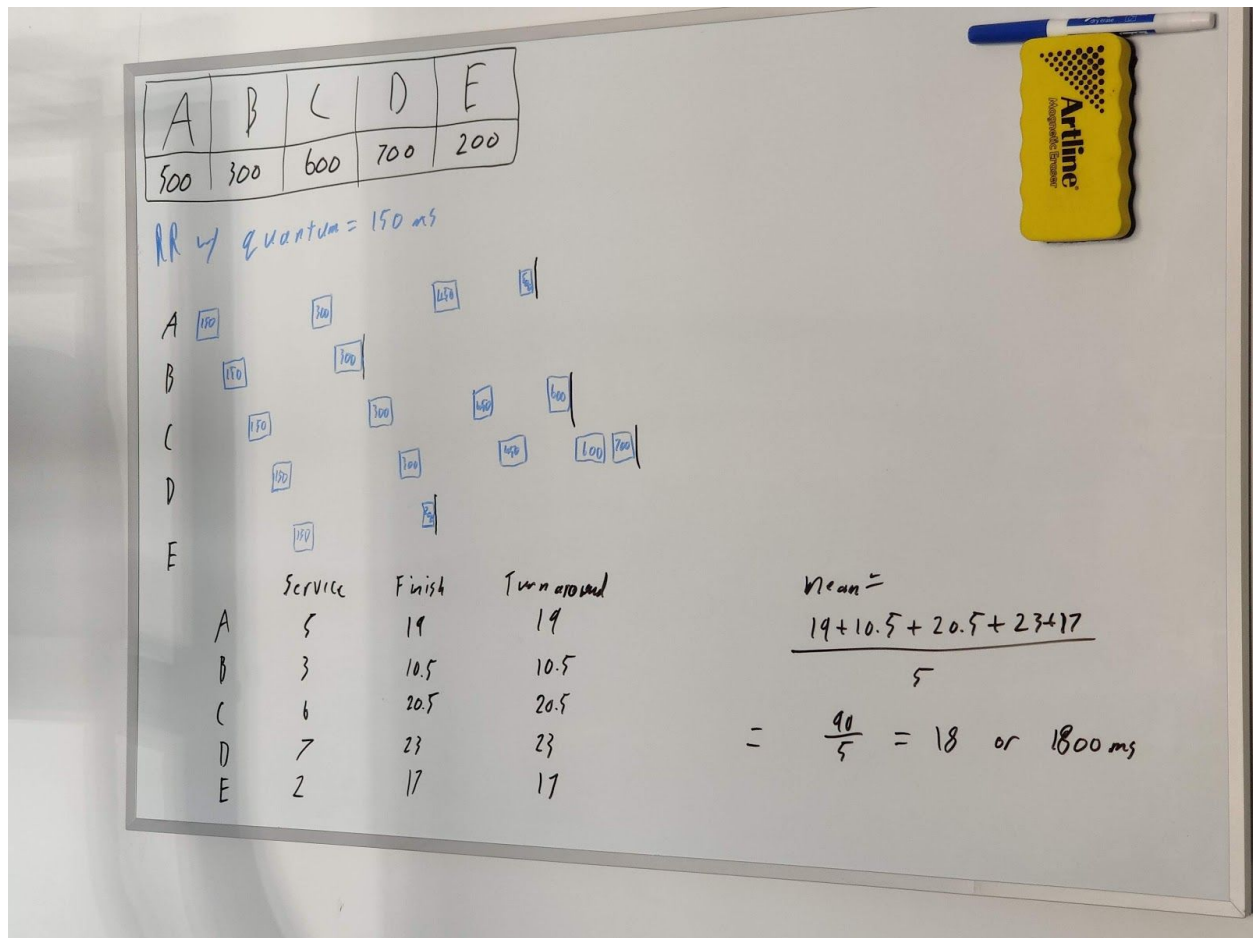 A B C D E
500 300 600 700 200
RR w/ quantum = 150 ms
A 150 300 450
B 150 300
C 150 300 450 600
D 150 300 450 600 700
E 150
Service Finish Turnaround
A 5 19 19
B 3 10.5 10.5
C 6 20.5 20.5
D 7 23 23
E 2 17 17
Mean =
19+10.5+20.5+23+17
5
= 90/5 = 18 or 1800 ms
Artline
Magnetic Eraser